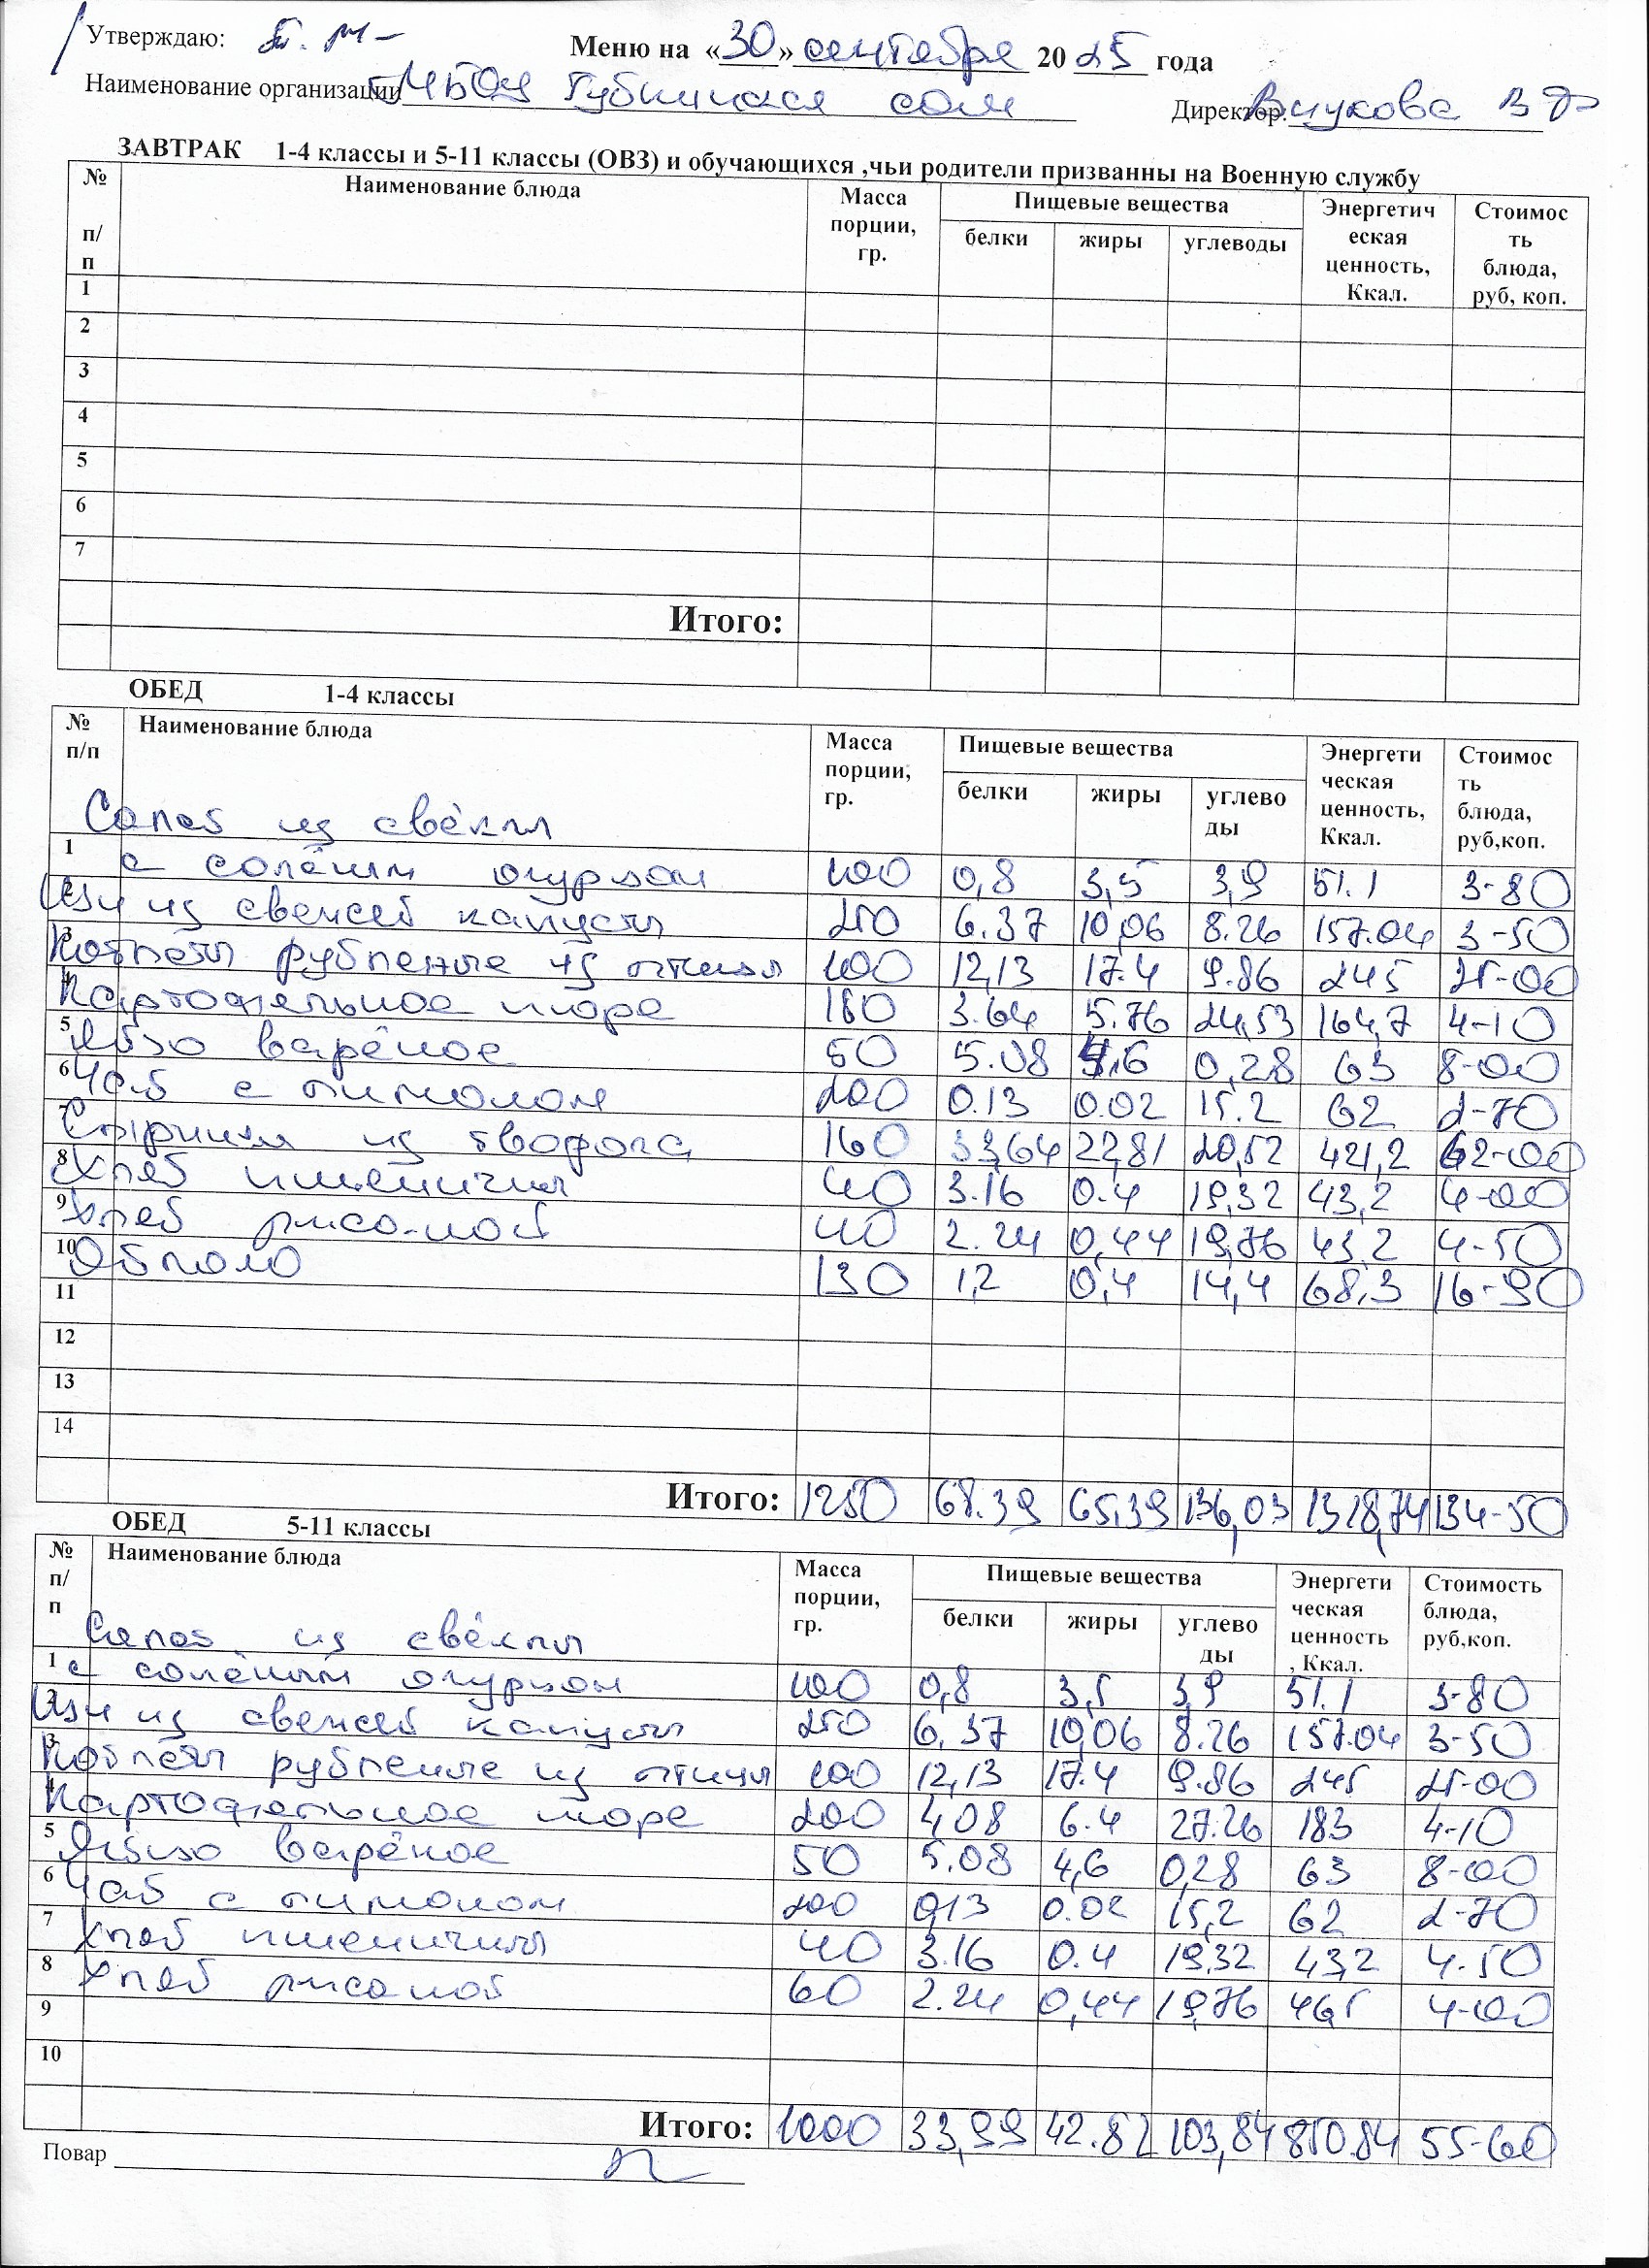 Утверждаю:
Меню на «30» сентября 2025 года
Наименование организации МБОУ Губкинская сош Директор: Внукова
ЗАВТРАК 1-4 классы и 5-11 классы (ОВЗ) и обучающихся ,чьи родители призванны на Военную службу
№ п/п Наименование блюда Масса порции, гр. Пищевые вещества белки жиры углеводы Энергетическая ценность, Ккал. Стоимость блюда, руб, коп.
1
2
3
4
5
6
7
Итого:
ОБЕД 1-4 классы
№ п/п Наименование блюда Масса порции, гр. Пищевые вещества белки жиры углеводы Энергетическая ценность, Ккал. Стоимость блюда, руб,коп.
Салат из свёклы
1 с солёным огурцом 100 0,8 3,5 3,9 51.1 3-80
2 Щи из свежей капусты 250 6.37 10,06 8.26 157.04 3-50
3 Котлеты рубленые из птицы 100 12,13 17.4 9.86 245 25-00
4 Картофельное пюре 180 3.64 5.76 24,53 164,7 4-10
5 Яйцо варёное 50 5.08 4,6 0,28 63 8-00
6 Чай с лимоном 200 0.13 0.02 15.2 62 2-70
7 Сырники из творога 160 33,64 22,81 20,52 421,2 62-00
8 Хлеб пшеничный 40 3.16 0.4 19,32 43,2 4-00
9 Хлеб ржаной 40 2.24 0,44 19,76 43,2 4-50
10 Яблоко 130 1,2 0,4 14,4 68,3 16-90
11
12
13
14
Итого: 1250 68.39 65,39 136,03 1318,74 134-50
ОБЕД 5-11 классы
№ п/п Наименование блюда Масса порции, гр. Пищевые вещества белки жиры углеводы Энергетическая ценность, Ккал. Стоимость блюда, руб,коп.
Салат из свёклы
1 с солёным огурцом 100 0,8 3,5 3,9 51.1 3-80
2 Щи из свежей капусты 250 6,37 10,06 8.26 157.04 3-50
3 Котлеты рубленые из птицы 100 12,13 17.4 9.86 245 25-00
4 Картофельное пюре 200 4,08 6.4 27.26 183 4-10
5 Яйцо варёное 50 5.08 4,6 0,28 63 8-00
6 Чай с лимоном 200 0,13 0.02 15,2 62 2-70
7 Хлеб пшеничный 40 3.16 0.4 19,32 43,2 4-50
8 Хлеб ржаной 60 2.24 0,44 19,76 46,5 4-00
9
10
Итого: 1000 33,99 42.82 103,84 810.84 55-60
Повар